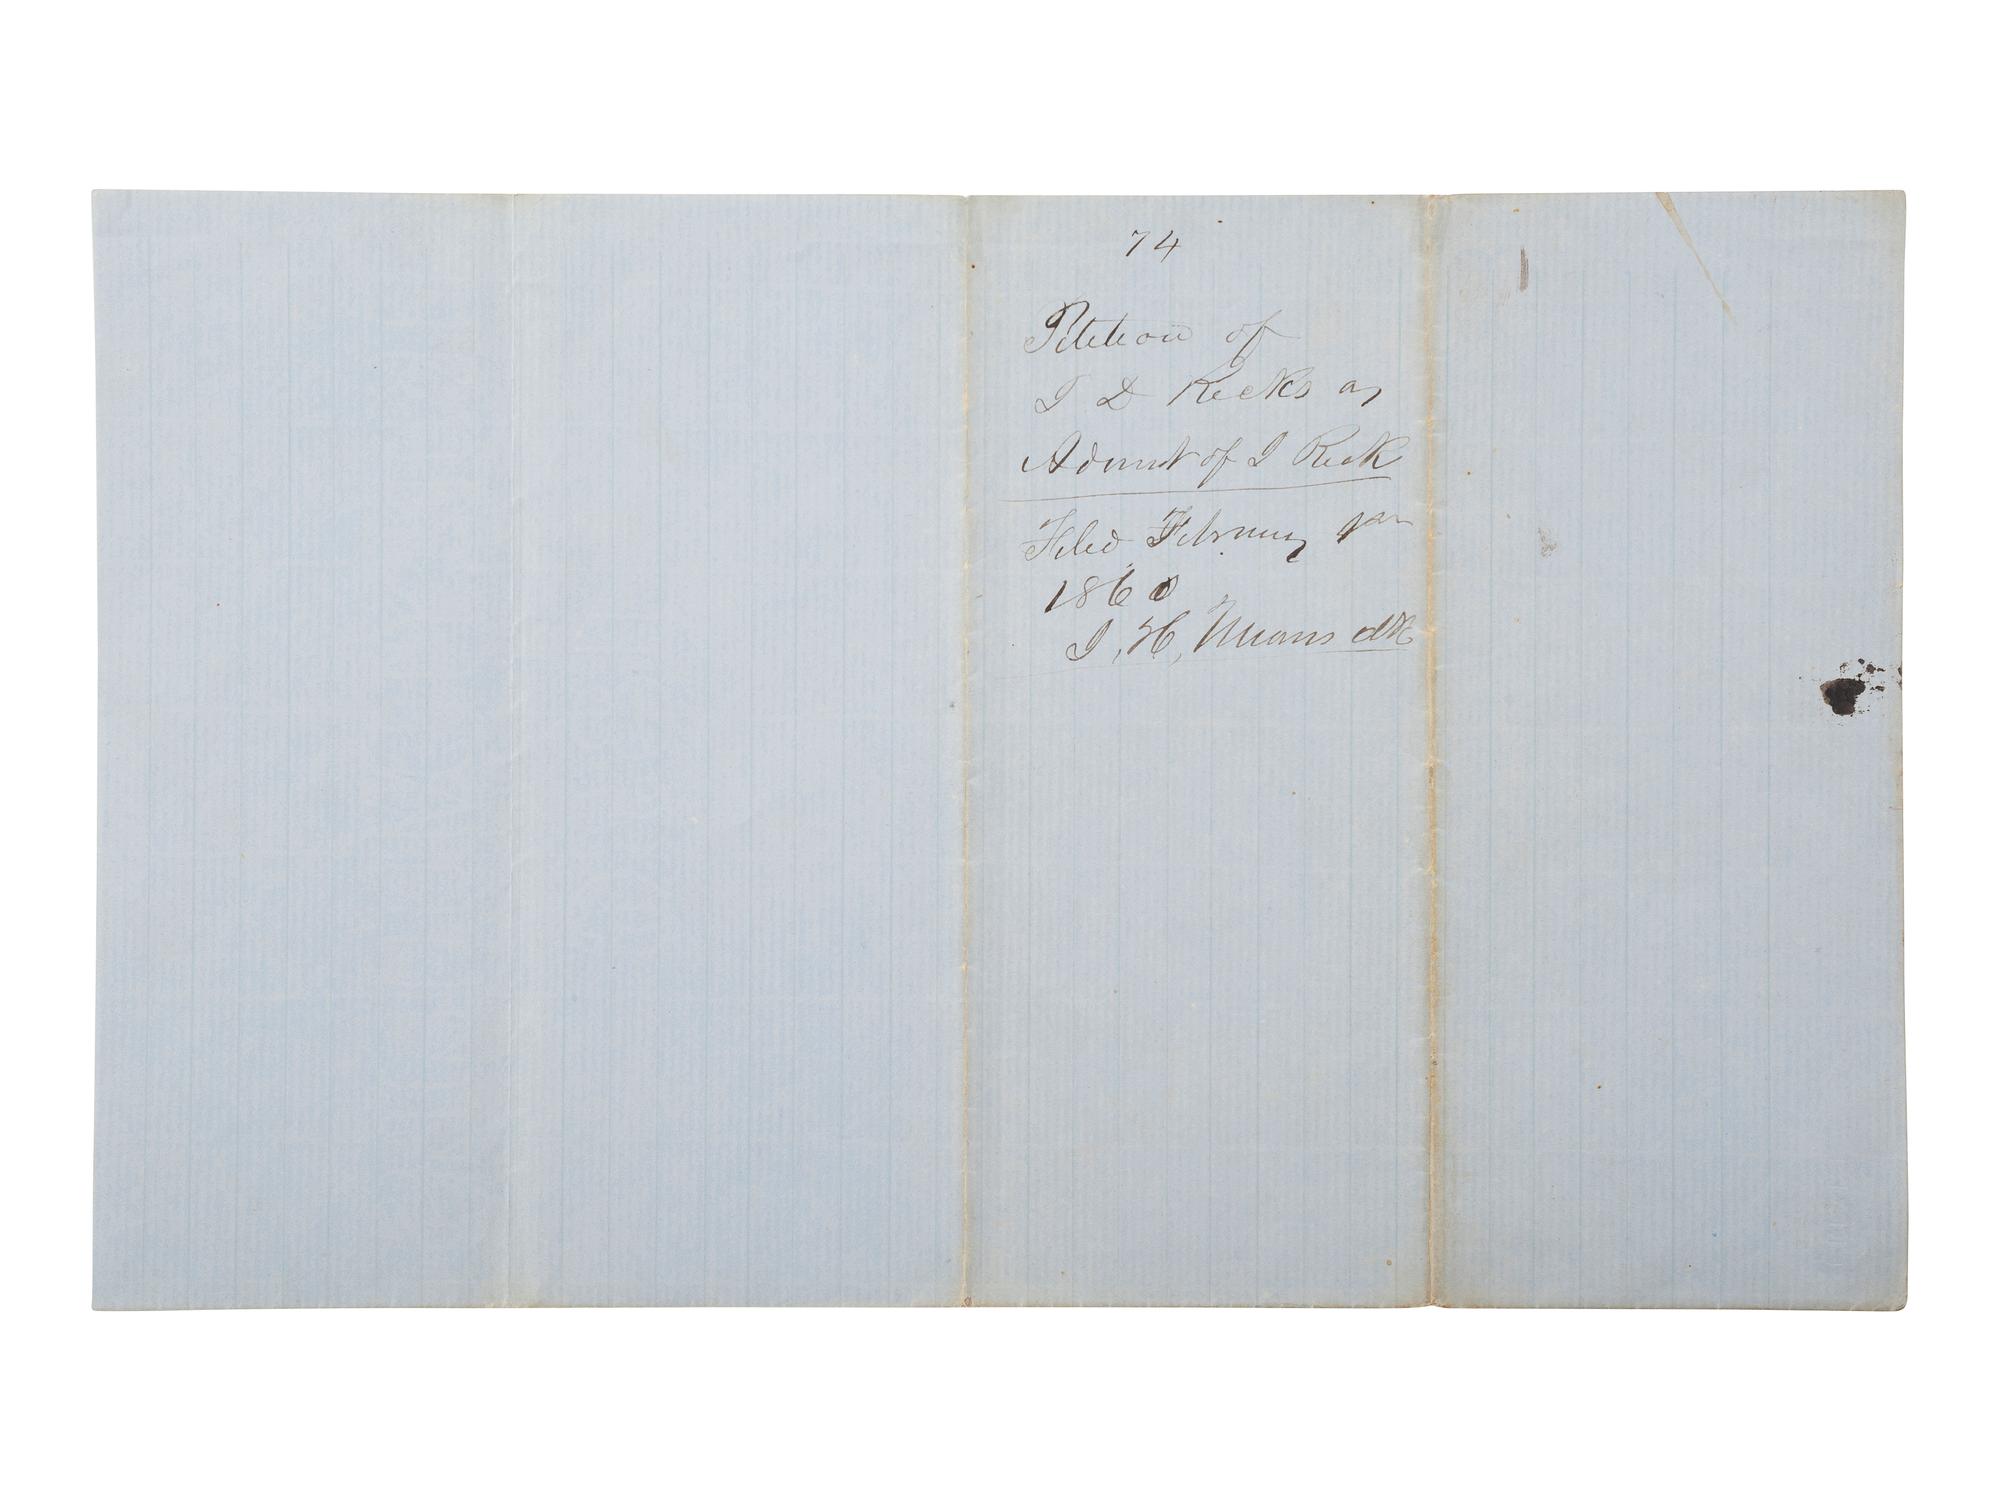 74
Petition of
J D Recks as
Admnt of J Reck
Filed February
1860
J, H, Means clk